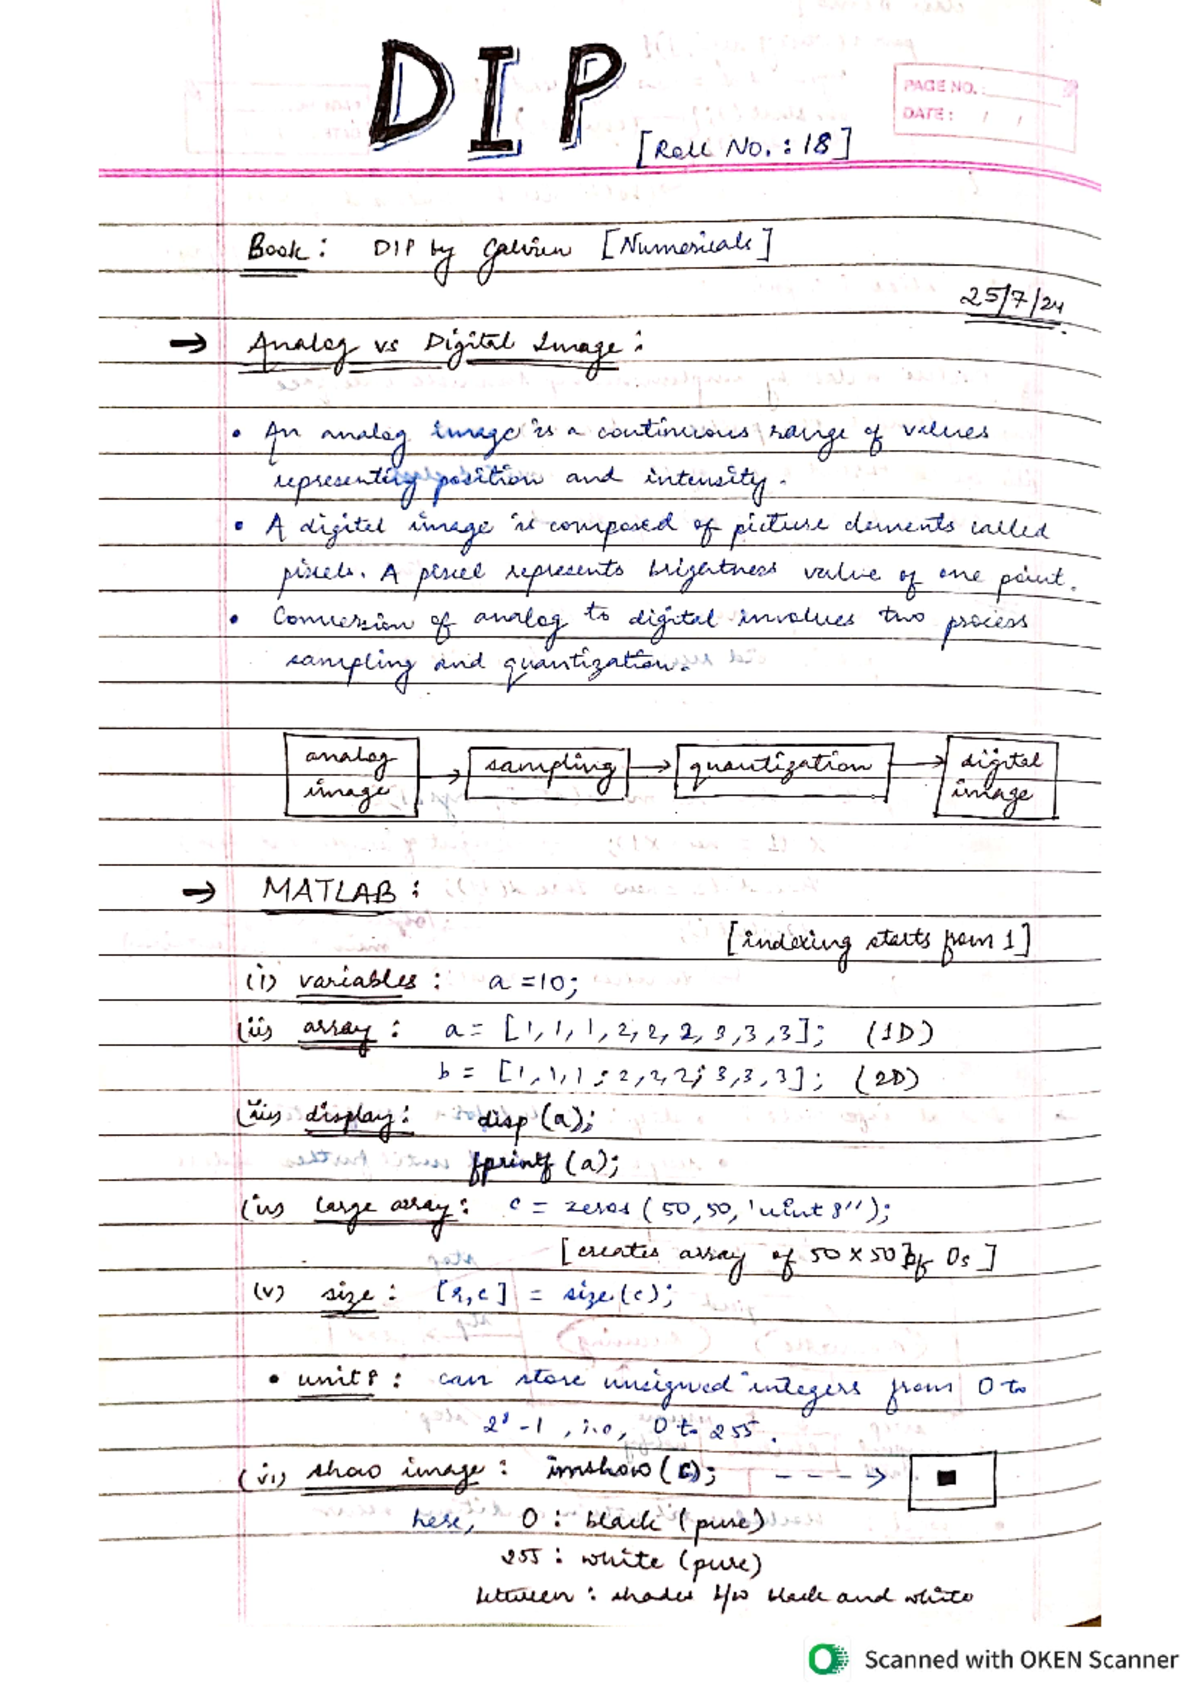 DIP
[Roll No. : 18]
PAGE NO. :
DATE : / /
Book : DIP by Galvien [Numericals]
25/7/24
→ Analog vs Digital Image :
• An analog image is a continuous range of values
representing position and intensity.
• A digital image is composed of picture elements called
pixels. A pixel represents brightness value of one point.
• Conversion of analog to digital involves two process
sampling and quantization.
analog
image
sampling
quantization
digital
image
→ MATLAB :
[indexing starts from 1]
(i) variables : a = 10;
(ii) array : a = [1, 1, 1, 2, 2, 2, 3, 3, 3]; (1D)
b = [1, 1, 1 ; 2, 2, 2; 3, 3, 3]; (2D)
(iii) display : disp (a);
fprintf (a);
(iv) large array : c = zeros (50, 50, 'uint 8'');
[creates array of 50 x 50 of 0s]
(v) size : [r, c] = size (c);
• unit 8 : can store unsigned integers from 0 to
2⁸ - 1 , i.e, 0 to 255 .
(vi) show image : imshow (c); - - - - →
here, 0 : black (pure)
255 : white (pure)
between : shades b/w black and white
Scanned with OKEN Scanner